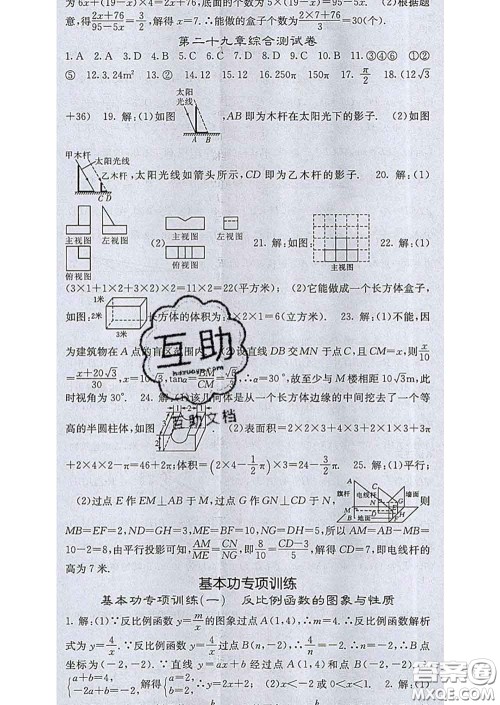 为6x+(19-x)×4=2x+76,底面的个数为5×(19-x)=95-5x.(2)根据题
意,得(2x+76)/(95-5x)=3/2,解得x=7.∴能做的盒子个数为(2×7+76)/3=30(个).
第二十九章综合测试卷
1. A 2. D 3. A 4. C 5. A 6. B 7. A 8. D 9. C 10. B 11. ③④⑥ ①②
⑤ 12. 3.24m² 13. 2 14. 12 15. 16 16. 250π 150π 17. π/2 18. (12√3
+36) 19. 解:(1)如图
太阳
光线
A B
,AB即为木杆在太阳光下的影子.(2)如图
甲木杆 太阳光线
乙木杆
C D
,太阳光线如箭头所示,CD即为乙木杆的影子. 20. 解:(1)
主视图 左视图
俯视图
(2)
主视图 左视图
俯视图
21. 解:如图:
主视图
22. 解:(1)
(3×1+1×2+3×2)×2=11×2=22(平方米);(2)它能做成一个长方体盒子,
如图:
1米
2米
3米
长方体的体积为3×2×1=6(立方米). 23. 解:(1)不能,因
为建筑物在A点的盲区范围内;(2)设直线DB交MN于点C,且CM=x,则x/10
=(x+20√3)/30,x=10√3(m),tanα=BM/CM=√3/3,∴α=30°,故至少与M楼相距10√3m,此
时视角为30°. 24. 解:(1)该几何体是从一个长方体边缘的中间挖去了一个等
高的半圆柱体,如图
(2)表面积=2×4×2+2×1×3+π×3+
+2×4×2-π=46+2π;体积=(2×4-1/2π)×3=24-3/2π. 25. 解:(1)平行;
(2)过点E作EM⊥AB于M,过点G作GN⊥CD于N,
旗杆 电线杆 墙面
地面
则
MB=EF=2,ND=GH=3,ME=BF=10,NG=DH=5,所以AM=AB-MB=
10-2=8,由平行投影可知,AM/ME=CN/NG,即8/10=(CD-3)/5,解得CD=7,即电线杆的
高为7米.
基本功专项训练
基本功专项训练(一) 反比例函数的图象与性质
1. 解:(1)∵反比例函数y=m/x的图象过点A(1,4)∴m=4.∴反比例函数解析
式为y=4/x.∵反比例函数y=4/x过点B(n,-2),∴4/n=-2.∴n=-2.∴B点
坐标为(-2,-2).∵直线y=ax+b经过点A(1,4)和点B(-2,-2).∴
{a+b=4, -2a+b=-2, 解得{ ∴y=2x+2;(2)x<-2或0<x<1. 2. 解:
互助
互助文档
答案圈
MXQE.COM